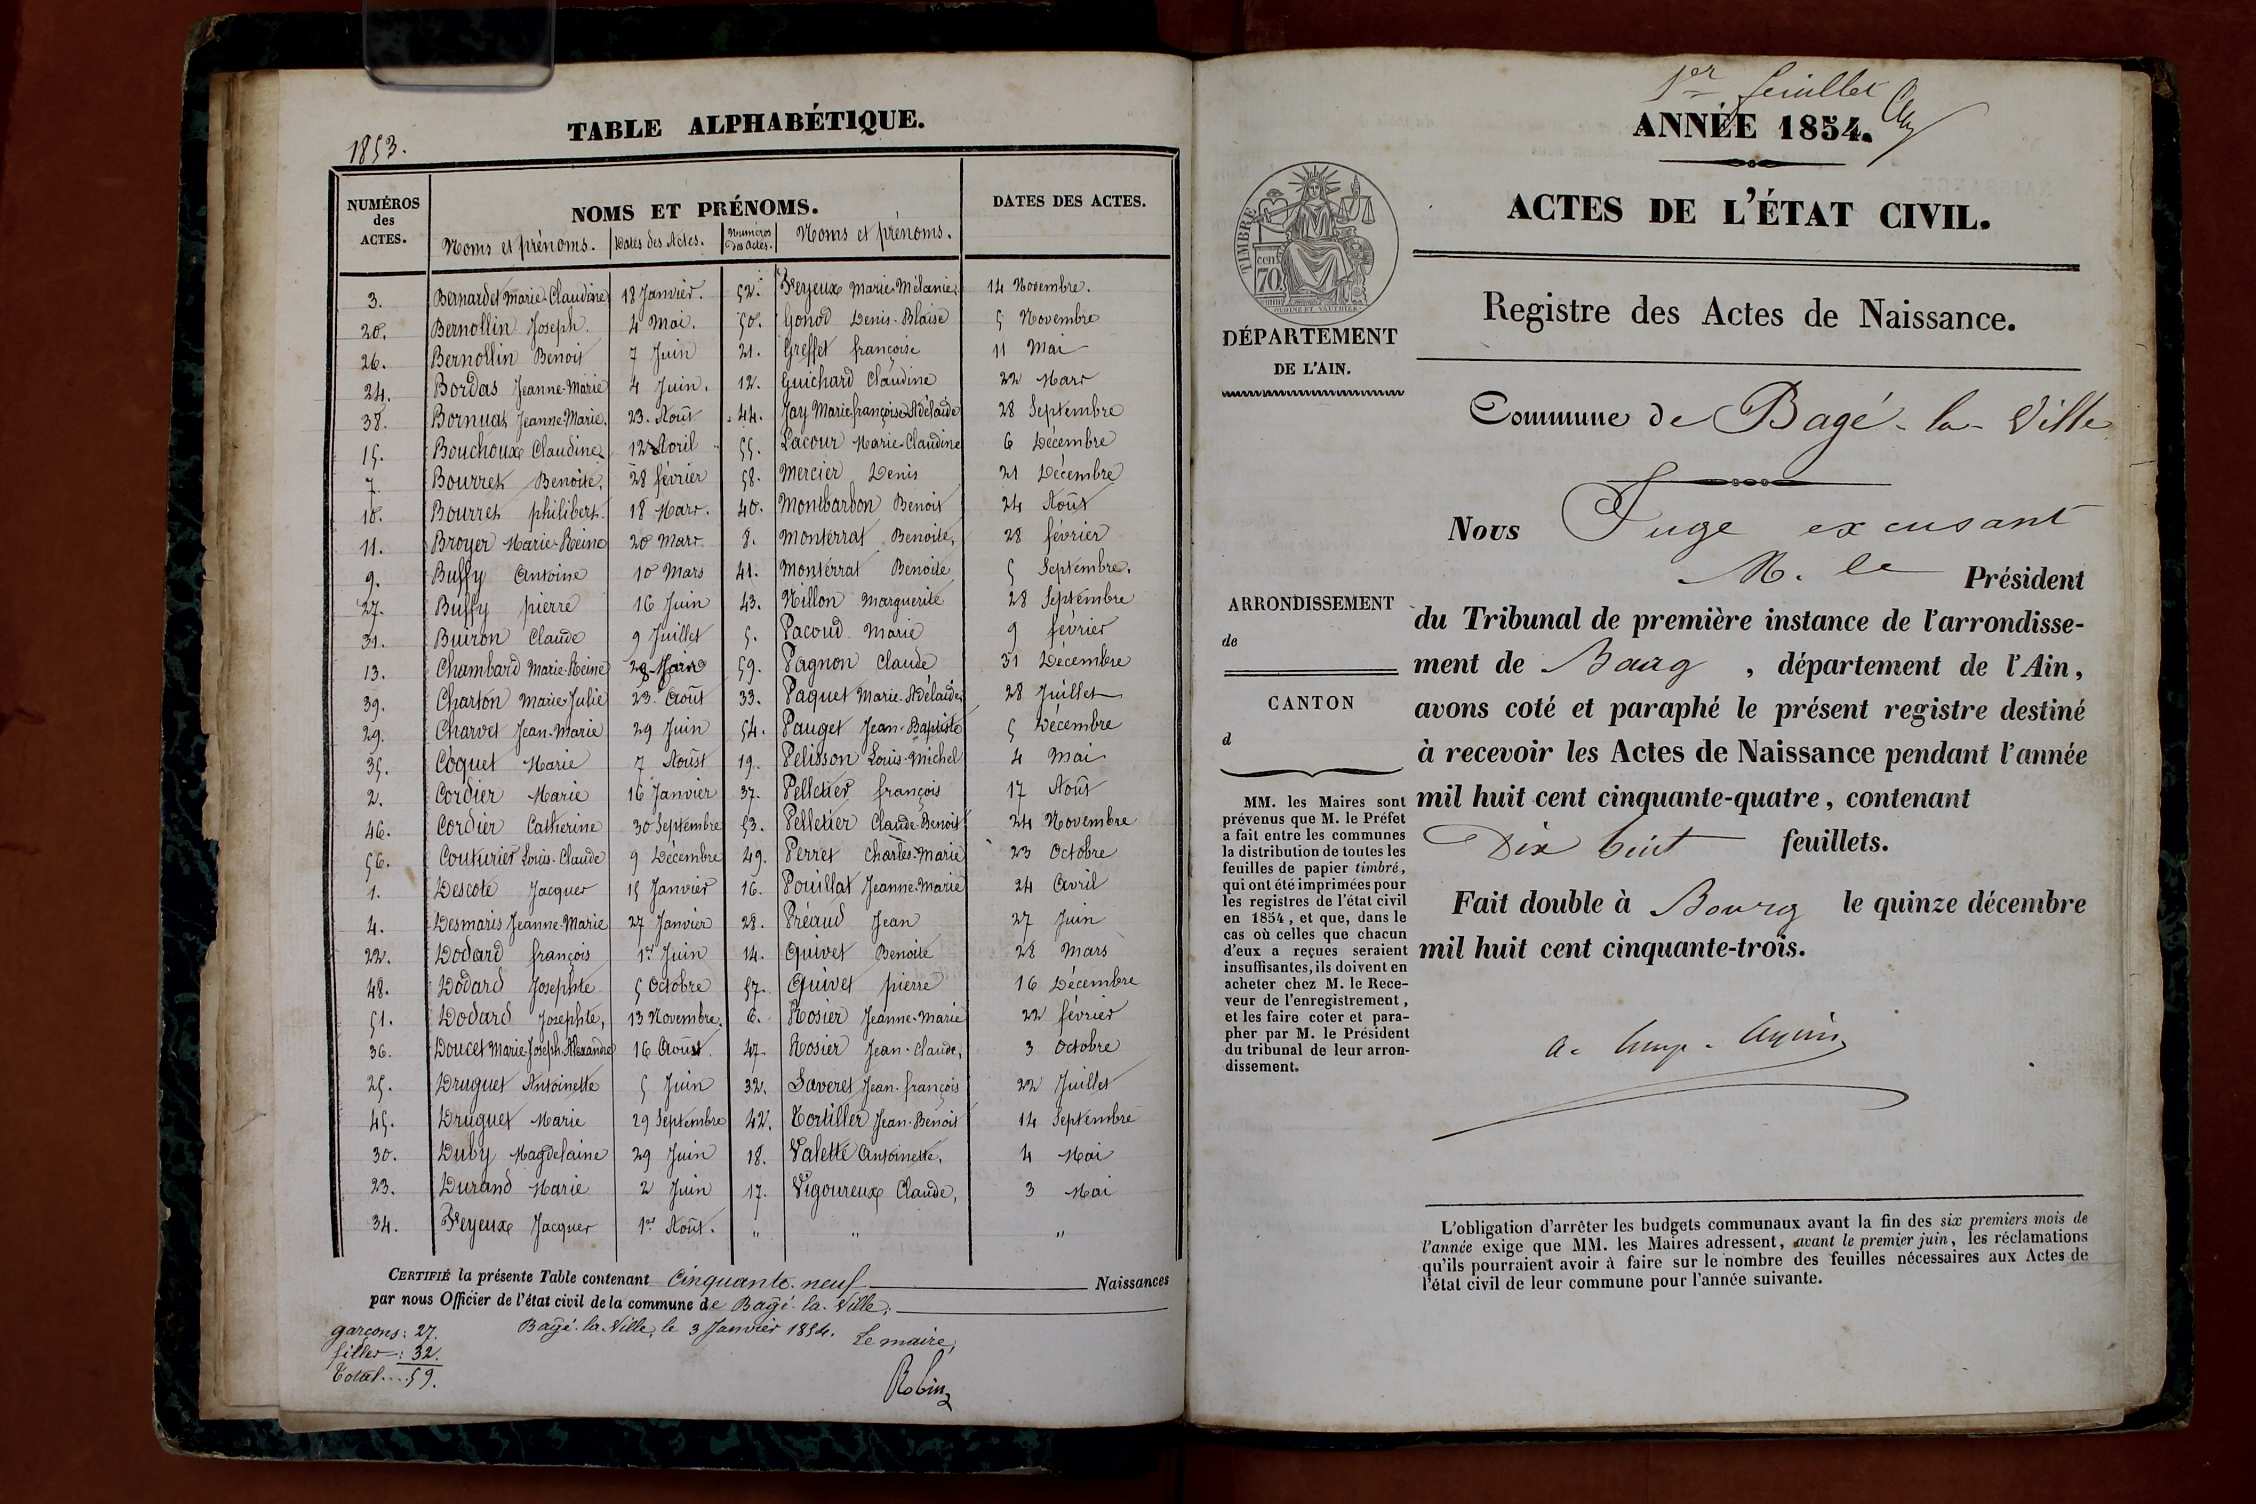 1853.
TABLE ALPHABÉTIQUE.
NUMÉROS des ACTES.
NOMS ET PRÉNOMS.
DATES DES ACTES.
Noms et prénoms. Dates des Actes. Numéros des Actes. Noms et prénoms.
3. Bernardet Marie-Claudine 18 Janvier. 52. Feyeux Marie-Mélanie. 14 Novembre.
20. Bernollin Joseph. 4 Mai. 50. Gonod Denis-Blaise 5 Novembre
26. Bernollin Benoit 7 Juin 21. Greffet françoise 11 Mai
24. Bordas Jeanne-Marie 4 Juin. 12. Guichard Claudine 22 Mars
38. Bornuat Jeanne-Marie. 23. Août 44. Jay Marie françoise Adélaïde 28 Septembre
15. Bouchoux Claudine 12 Avril 55. Lacour Marie-Claudine 6 Décembre
7. Bourret Benoite, 28 février 58. Mercier Denis 21 Décembre
10. Bourret philibert. 18 Mars. 40. Montbarbon Benoit 24 Août
11. Broyer Marie-Reine 20 Mars 8. Montérrat Benoite, 28 février
9. Buffy Antoine 10 Mars 41. Montérrat Benoite 5 Septembre.
27. Buffy pierre 16 Juin 43. Nillon Marguerite 28 Septembre
31. Buiron Claude 9 Juillet 5. Pacoud Marie 9 février
13. Chambard Marie-Reine 28 Mars 59. Pagnon Claude 31 Décembre
39. Charton Marie Julie 23. Août 33. Paquet Marie-Adélaïde 28 Juillet
29. Charvet Jean-Marie 29 Juin 54. Pauget Jean-Baptiste 5 Décembre
35. Coquet Marie 7 Août 19. Pelisson Louis-Michel 4 Mai
2. Cordier Marie 16 Janvier 37. Pelletier françois 17 Août
46. Cordier Catherine 30 Septembre 53. Pelletier Claude-Benoit 24 Novembre
56. Couturier Louis-Claude 9 Décembre 49. Perret Charles-Marie 23 Octobre
1. Descote Jacques 15 Janvier 16. Pouillat Jeanne-Marie 24 Avril
4. Desmaris Jeanne-Marie 27 Janvier 28. Préaud Jean 27 Juin
22. Dodard françois 1er Juin 14. Quivet Benoite 28 Mars
48. Dodard Josephte 5 Octobre 57. Quivet pierre 16 Décembre
51. Dodard Josephte, 13 Novembre. 6. Rosier Jeanne-Marie 22 février
36. Doucet Marie-Joseph-Alexandre 16 Août. 47. Rosier Jean-Claude, 3 Octobre
25. Druguet Antoinette 5 Juin 32. Saveret Jean-françois 22 Juillet
45. Druguet Marie 29 Septembre 42. Tortiller Jean-Benoit 14 Septembre
30. Duby Magdelaine 29 Juin 18. Valette Antoinette, 4 Mai
23. Durand Marie 2 Juin 17. Vigoureux Claude, 3 Mai
34. Feyeux Jacques 1er Août. " " "
CERTIFIÉ la présente Table contenant Cinquante-neuf Naissances
par nous Officier de l'état civil de la commune de Bagé-la-Ville.
Bagé-la-Ville, le 3 Janvier 1854. Le maire,
garçons: 27.
filles: 32.
Total....59.
Robin
1er feuillet
ANNÉE 1854.
ACTES DE L'ÉTAT CIVIL.
TIMBRE
70 cent
OUDINÉ ET GAUTHIER
DÉPARTEMENT
DE L'AIN.
Registre des Actes de Naissance.
Commune de Bagé-la-Ville
Nous Juge excusant
M. le Président
du Tribunal de première instance de l'arrondisse-
ment de Bourg, département de l'Ain,
avons coté et paraphé le présent registre destiné
à recevoir les Actes de Naissance pendant l'année
mil huit cent cinquante-quatre, contenant
Dix huit feuillets.
Fait double à Bourg le quinze décembre
mil huit cent cinquante-trois.
ARRONDISSEMENT
de
CANTON
d
MM. les Maires sont
prévenus que M. le Préfet
a fait entre les communes
la distribution de toutes les
feuilles de papier timbré,
qui ont été imprimées pour
les registres de l'état civil
en 1854, et que, dans le
cas où celles que chacun
d'eux a reçues seraient
insuffisantes, ils doivent en
acheter chez M. le Rece-
veur de l'enregistrement,
et les faire coter et para-
pher par M. le Président
du tribunal de leur arron-
dissement.
L'obligation d'arrêter les budgets communaux avant la fin des six premiers mois de
l'année exige que MM. les Maires adressent, avant le premier juin, les réclamations
qu'ils pourraient avoir à faire sur le nombre des feuilles nécessaires aux Actes de
l'état civil de leur commune pour l'année suivante.